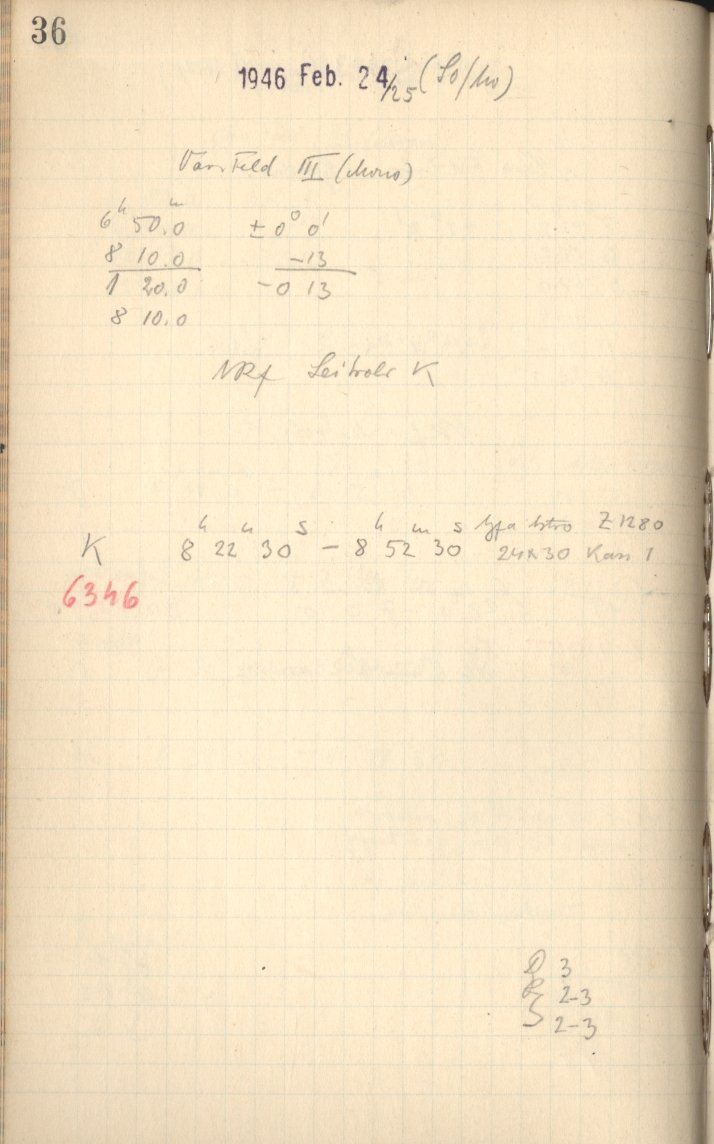 36
1946 Feb. 24/25 (So/Mo)
Var. Feld III (Mono)
6h 50m.0 ± 0° 0'
8 10.0 -13
1 20.0 -0 13
8 10.0
NRf Leitrohr K
K 8h 22m 30s - 8h 52m 30s Agfa Astro Z1280
24x30 Kass 1
6346
D 3
R 2-3
S 2-3